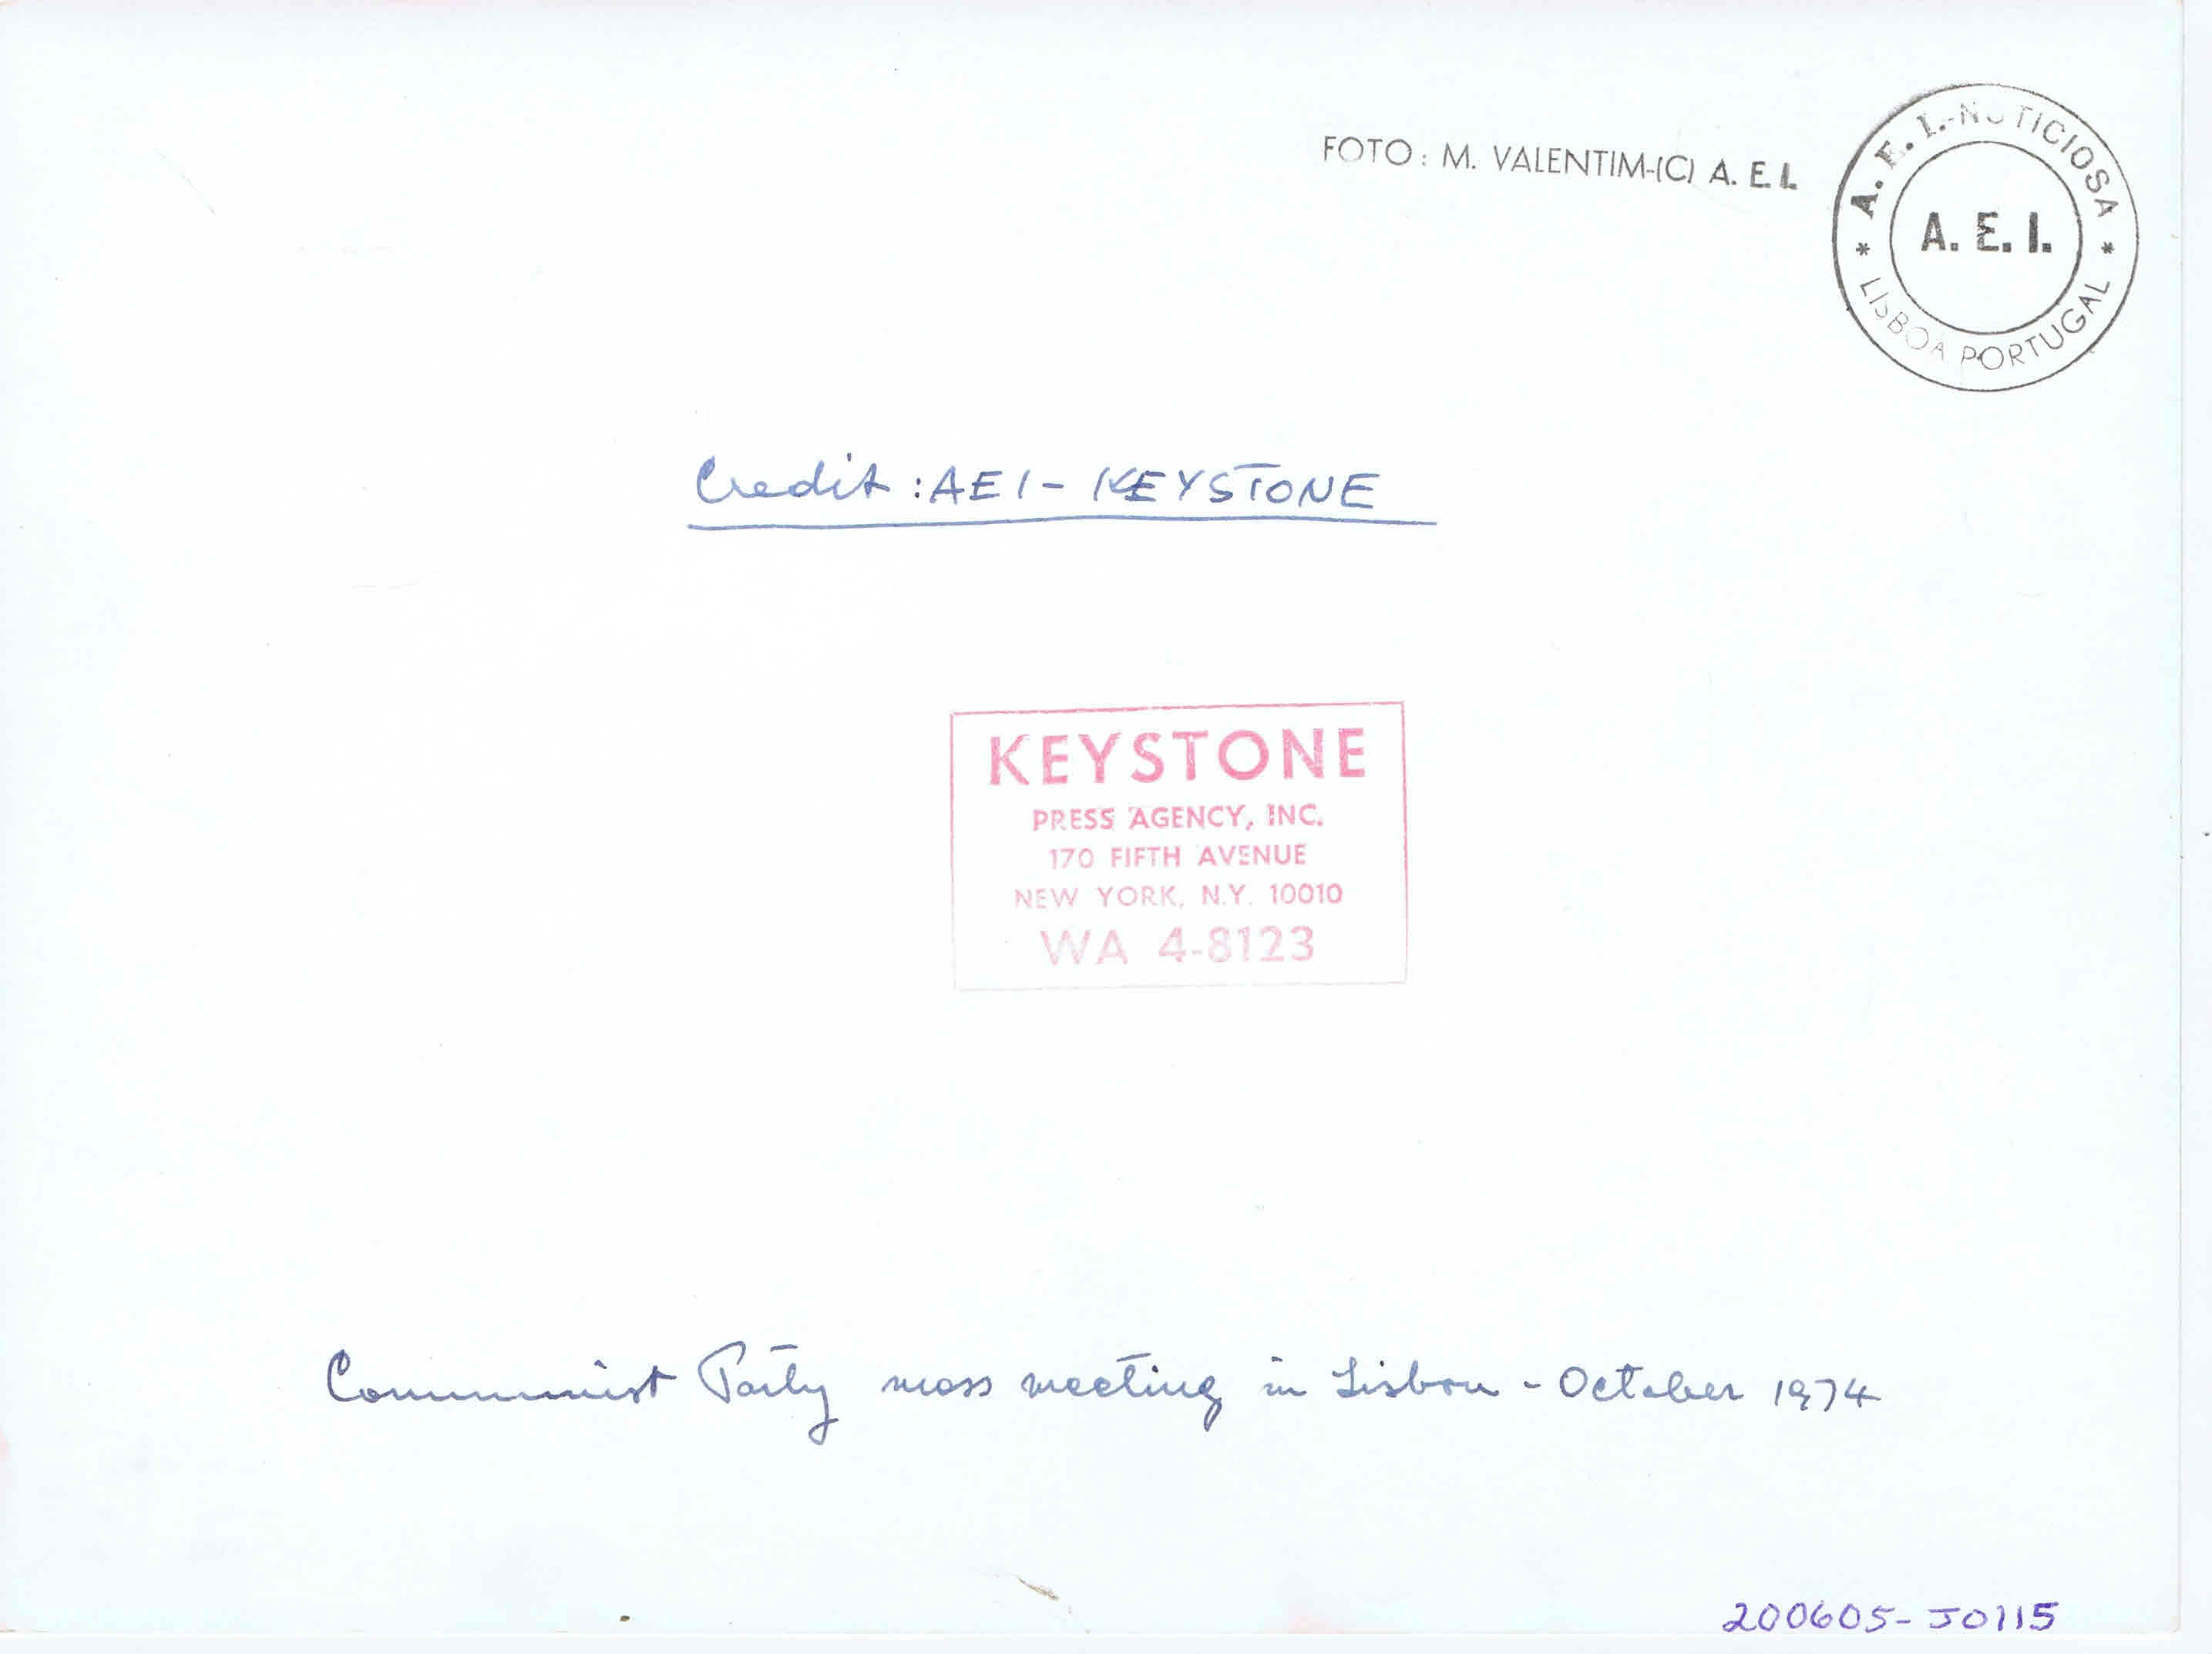 FOTO: M. VALENTIM-(C) A. E. I.
* A. E. I.-NOTICIOSA *
A. E. I.
LISBOA PORTUGAL
Credit: AEI-KEYSTONE
KEYSTONE
PRESS AGENCY, INC.
170 FIFTH AVENUE
NEW YORK, N.Y. 10010
WA 4-8123
Communist Party mass meeting in Lisbon - October 1974
200605-J0115